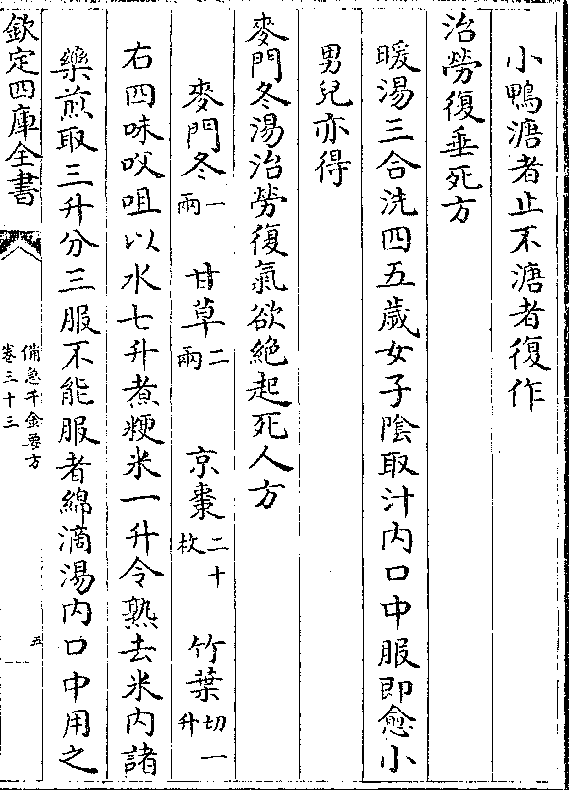 小鴨溏者止不溏者復作
治勞復垂死方
暖湯三合洗四五歲女子陰取汁内口中服即愈小
男兒亦得
麥門冬湯治勞復氣欲絶起死人方
麥門冬一兩 甘草二兩 京棗二十枚 竹葉切一升
右四味㕮咀以水七升煮粳米一升令熟去米内諸
藥煎取三升分三服不能服者綿滴湯内口中用之
欽定四庫全書
備急千金要方
卷三十三
五